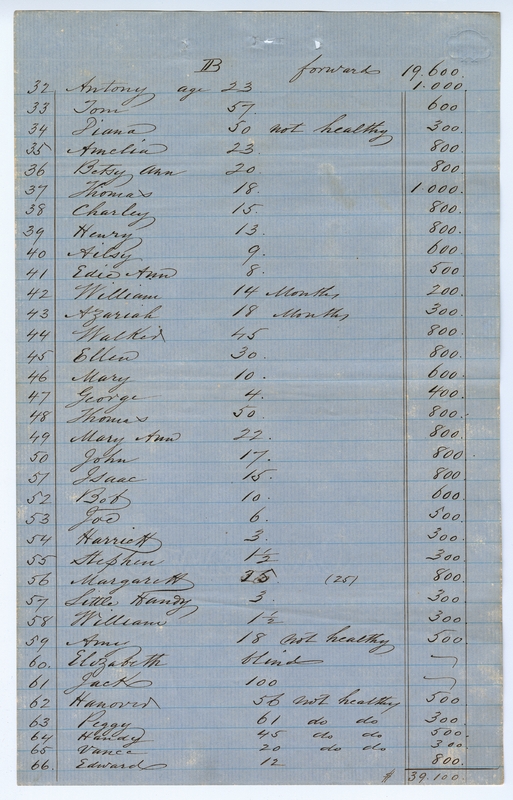 B forward 19.600.
32 Antony age 23 1.000.
33 Tom 57. 600
34 Diana 50 not healthy 300.
35 Amelia 23. 800.
36 Betsy Ann 20. 800.
37 Thomas 18. 1.000.
38 Charley 15. 800.
39 Henry 13. 800.
40 Ailsy 9. 600.
41 Edie Ann 8. 500
42 William 14 Months 200.
43 Azariah 18 Months 300.
44 Walker 45 800.
45 Ellen 30. 800.
46 Mary 10. 600.
47 George 4. 400.
48 Thomas 50. 800.
49 Mary Ann 22. 800.
50 John 17. 800.
51 Isaac 15. 800.
52 Bob 10. 600.
53 Joe 6. 500.
54 Harriett 3. 300.
55 Stephen 1½ 300.
56 Margarett 35 (25) 800.
57 Little Handy 3. 300.
58 William 1½ 300.
59 Amy 18 not healthy 500.
60. Elizabeth blind
61 Jack 100
62 Hanover 56 not healthy 500
63 Peggy 61 do do 300.
64 Handy 45 do do 500.
65 Vance 20 do do 300
66. Edward 12 800.
$ 39.100.